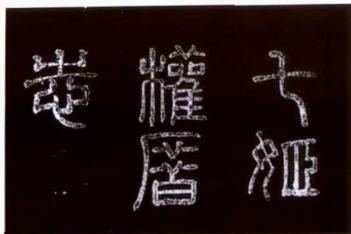 七姬
權厝
志